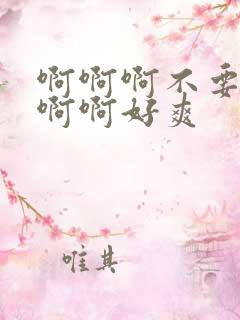 啊啊啊不要
啊啊好爽
唯其